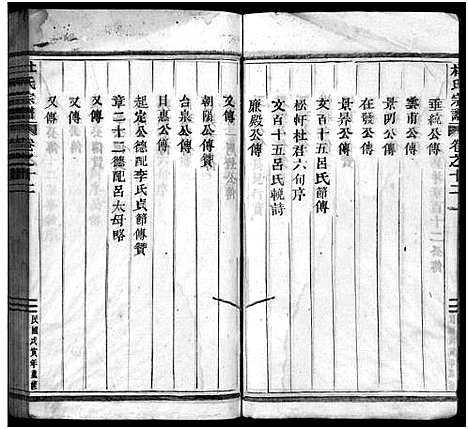 杜氏宗譜
卷之十二
垂統公傳
雲甫公傳
景昇公傳
在發公傳
文百十五呂氏節傳
松軒杜君六句序
文百十五呂氏輓詩
廉殿公傳
又傳
朝陽公傳
台泉公傳
日惠公傳
起定公德配李氏貞節傳贊
章二十二德配呂太母略
又傳
又傳
杜氏宗譜
卷之十二
民國戊寅年重修